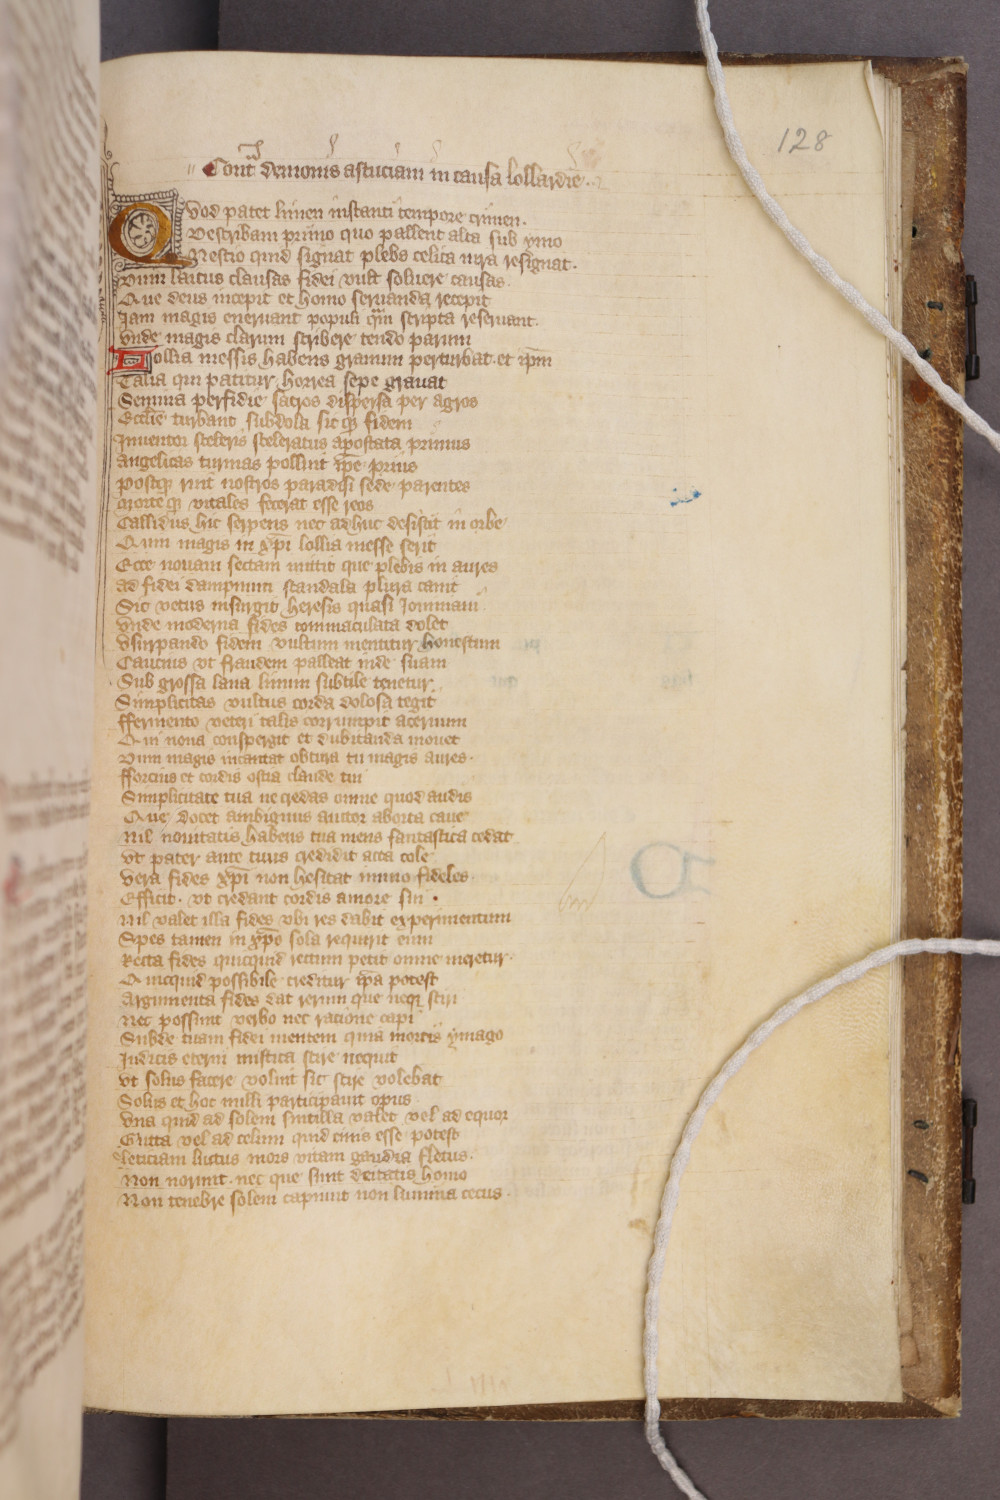 128
Contᷓ demonis astuciam in causa lollardie.
Quod patet limen instanti tempore crimen.
Describam primo quo pallent alta sub ymo
Nestio quid signat plebs celica iura resignat.
Dum laicus clausas fidei vult soluere causas.
Que deus incepit et homo seruanda recepit
Jam magis eneruant populi qͣm scripta reseruant.
Vnde magis clarum scribere tendo parum
Lollia messis habens granum perturbat et ip̄m
Talia qui patitur horrea sepe grauat
Semina perfidie sacros dispersa per agros
Eccl̄ie turbant subdola sicqꝫ fidem
Inuentor sceleris sceleratus apostata primus
angelicas turmas polluit ip̄e prius
postqꝫ ruit nostros paradisi sede parentes
morteqꝫ vitales fecerat esse reos
Callidus hic serpens nec adhuc desistit in orbe
Quin magis in xp̄i lollia messe serit
Ecce nouam sectam mittit que plebis in aures
ad fidei dampnum scandala plura canit
Sic vetus insurgit heresis quasi Jouiniani
Vnde moderna fides commaculata dolet
Vsurpando fidem vultum mentitur honestum
Caucius vt fraudem palleat inde suam
Sub grossa lana linum subtile tenetur
Simplicitas vultus corda dolosa tegit
ffermento veteri talis corrumpit aceruum
Qui noua conspergit et dubitanda mouet
Dum magis incantat obtura tu magis aures.
fforcius et cordis ostia claude tui
Simplicitate tua ne credas omne quod audis
Que docet ambiguus auctor aborta caue
Nil nouitatis habens tua mens fantastica cedat
vt pater ante tuus credidit acta cole
Vera fides xp̄i non hesitat immo fideles
Efficit. vt credant cordis amore sui.
Nil valet illa fides vbi res dabit experimentum
Spes tamen in xp̄o sola requirit eum
Recta fides quicquid rectum petit omne meretur.
Quicquid possibile creditur ip̄a potest
Argumenta fides dat rerum que neqꝫ sciri
Nec possunt verbo nec racione capi
Subde tuam fidei mentem quia mortis ymago
Judicis eterni mistica scire nequit
vt solus facere voluit sic scire volebat
Solus et hoc nulli participauit opus
Vna quid ad solem sintilla valet vel ad equor
Gutta vel ad celum quid cinis esse potest
Leticiam luctus mors vitam gaudia fletus.
Non norunt. nec que sunt deitatis homo
Non tenebre solem capiunt non lumina cecus.